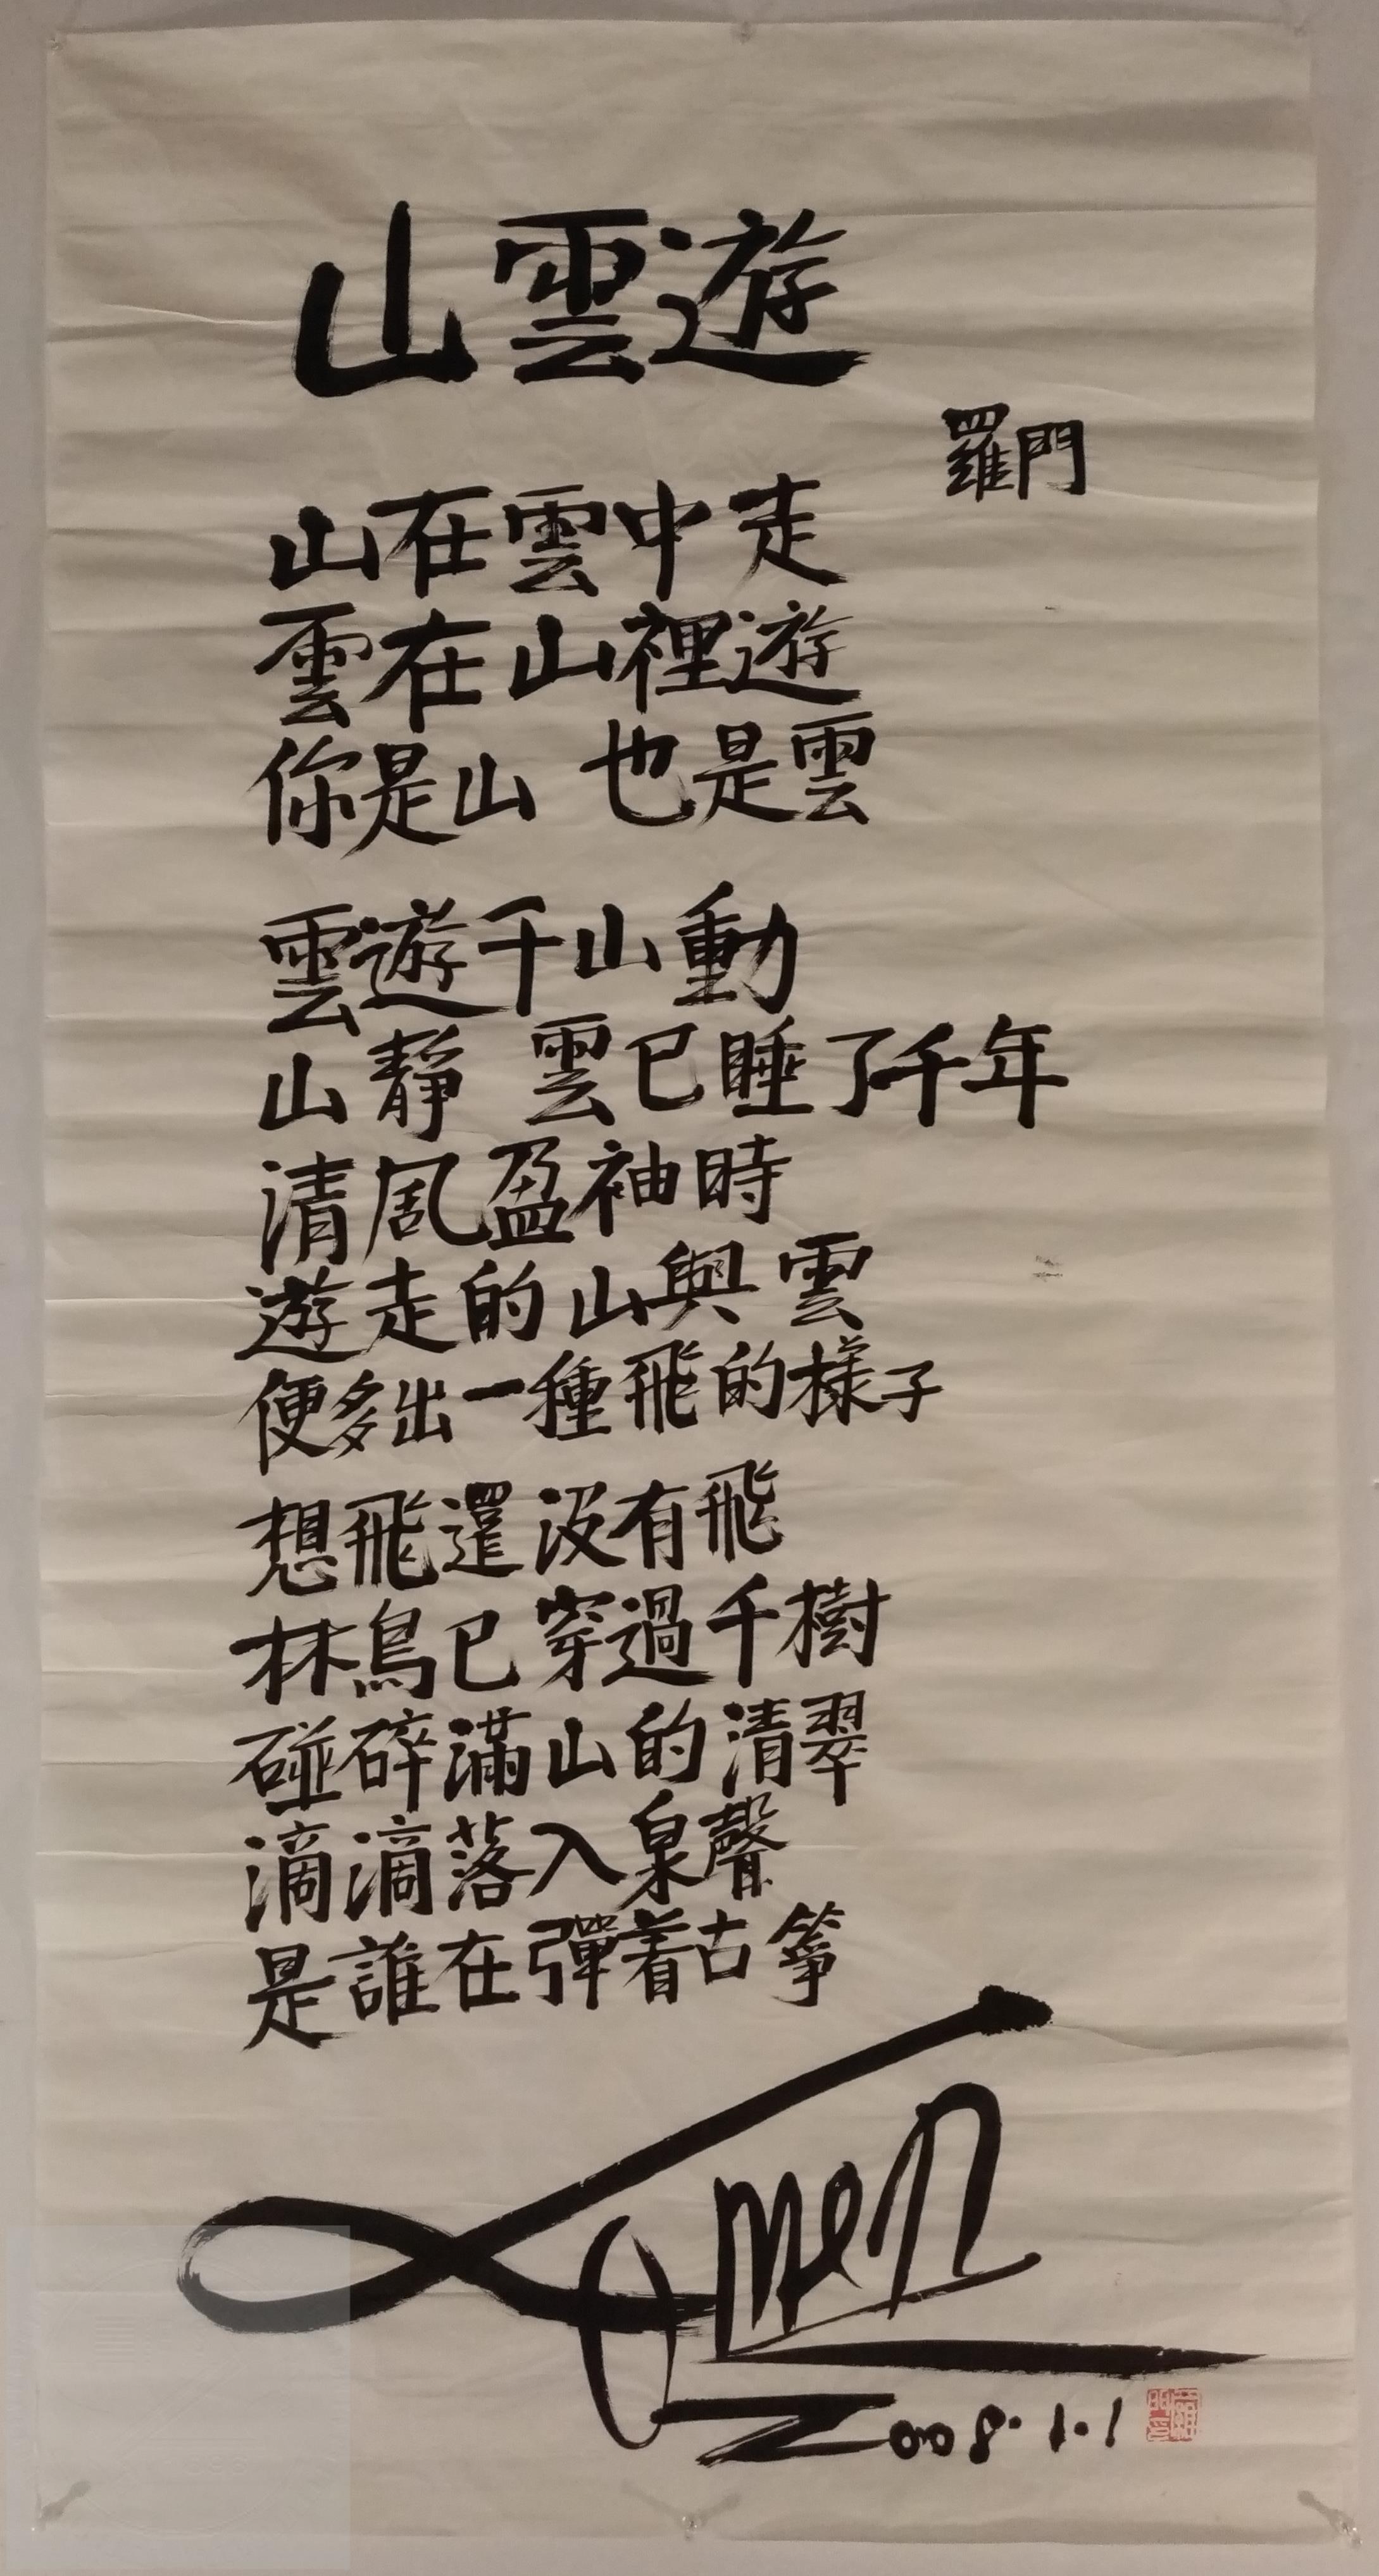 山雲遊
羅門
山在雲中走
雲在山裡遊
你是山 也是雲
雲遊千山動
山靜 雲已睡了千年
清風盈袖時
遊走的山與雲
便多出一種飛的樣子
想飛還沒有飛
林鳥已穿過千樹
碰碎滿山的清翠
滴滴落入泉聲
是誰在彈着古箏
Lomen
2008.1.1